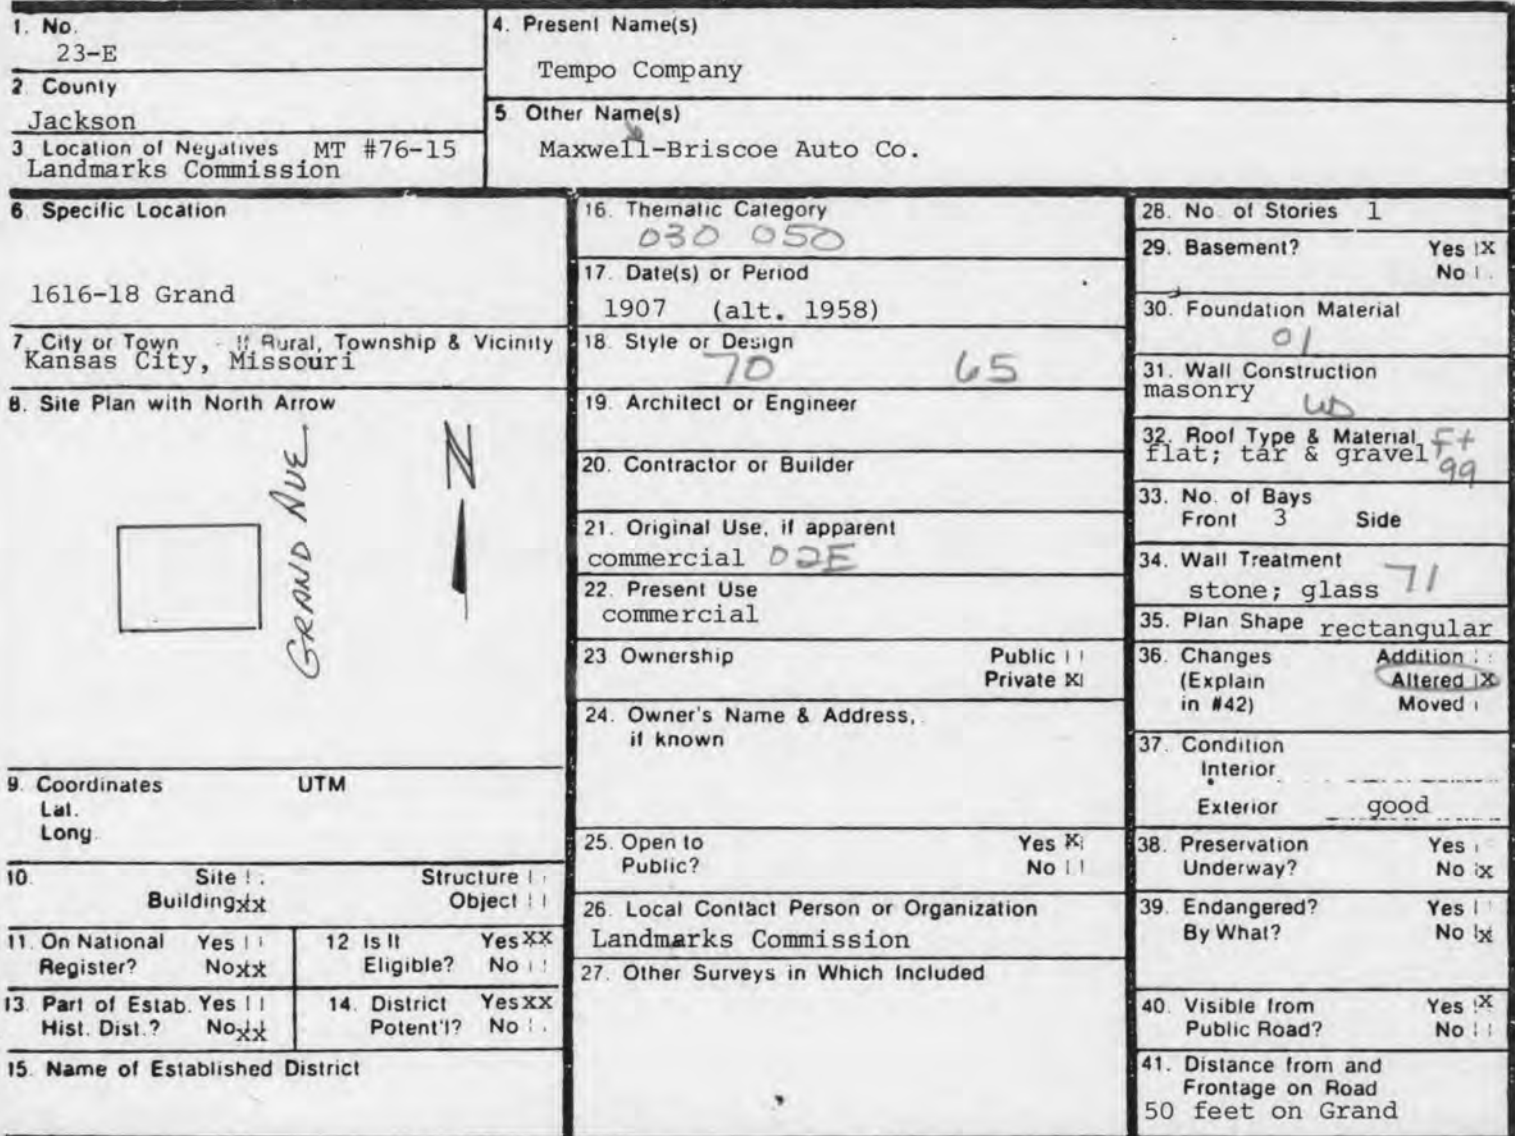 1. No.
23-E
2. County
Jackson
3 Location of Negatives MT #76-15
Landmarks Commission
4. Present Name(s)
Tempo Company
5 Other Name(s)
Maxwell-Briscoe Auto Co.
6. Specific Location
1616-18 Grand
7. City or Town If Rural, Township & Vicinity
Kansas City, Missouri
8. Site Plan with North Arrow
GRAND AVE.
N
9. Coordinates UTM
Lat.
Long.
10. Site Structure
Building xx Object
11. On National Yes
Register? No xx
12 Is It Yes XX
Eligible? No
13. Part of Estab. Yes
Hist. Dist.? No xx
14. District Yes XX
Potent'l? No
15. Name of Established District
16. Thematic Category
030 050
17. Date(s) or Period
1907 (alt. 1958)
18. Style or Design
70 65
19. Architect or Engineer
20. Contractor or Builder
21. Original Use, if apparent
commercial 02E
22. Present Use
commercial
23 Ownership Public
Private X
24. Owner's Name & Address,
if known
25. Open to Yes X
Public? No
26. Local Contact Person or Organization
Landmarks Commission
27. Other Surveys in Which Included
28. No. of Stories 1
29. Basement? Yes X
No
30. Foundation Material
01
31. Wall Construction
masonry
WD
32. Roof Type & Material Ft
flat; tar & gravel 99
33. No. of Bays
Front 3 Side
34. Wall Treatment
stone; glass 71
35. Plan Shape rectangular
36. Changes Addition
(Explain Altered X
in #42) Moved
37. Condition
Interior
Exterior good
38. Preservation Yes
Underway? No x
39. Endangered? Yes
By What? No x
40. Visible from Yes X
Public Road? No
41. Distance from and
Frontage on Road
50 feet on Grand